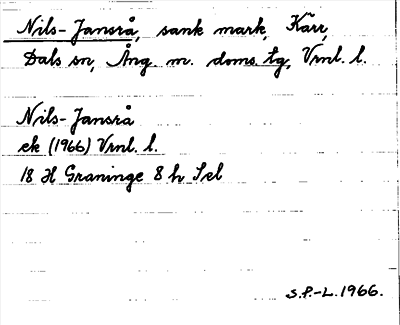 Nils-Jansrå, sank mark, Kärr,
Dals sn, Ång. m. doms. tg, Vrnl. l.
Nils-Jansrå
ek (1966) Vrnl. l.
18 H Graninge 8 h Sel
S.P.-L. 1966.